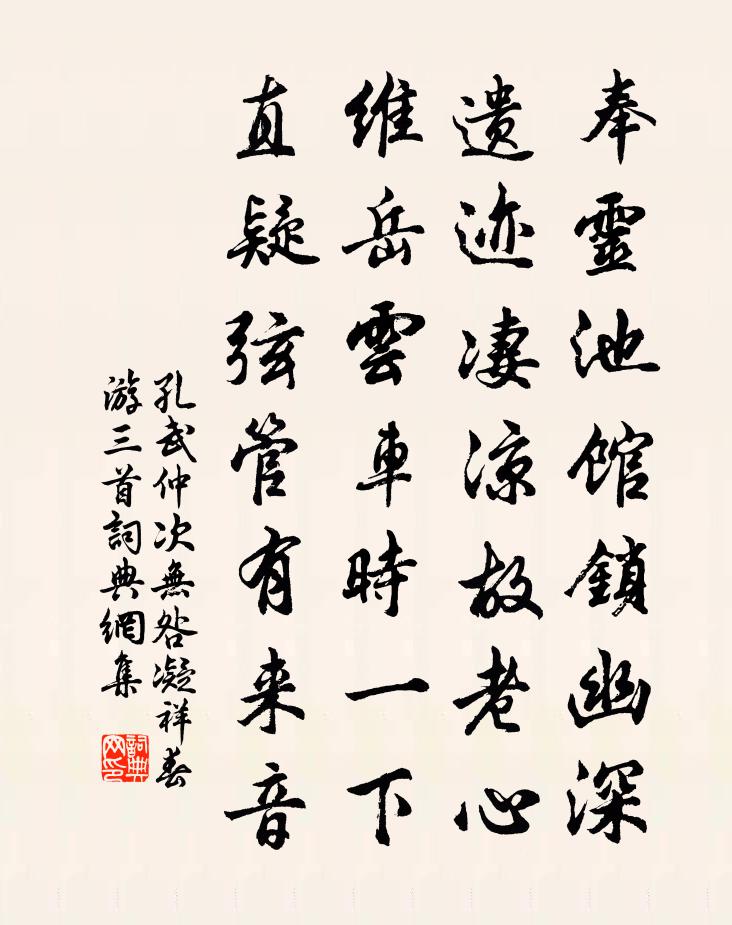 奉靈池館鎖幽深
遗迹凄涼故老心
維岳雲車時一下
直疑弦管有来音
孔武仲次無咎凝祥春
游三首詞典網集
詞典网印